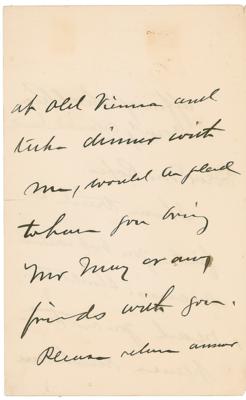 at Old Vienna and
take dinner with
me, would be glad
to have you bring
Mr May or any
friends with you.
Please return answer